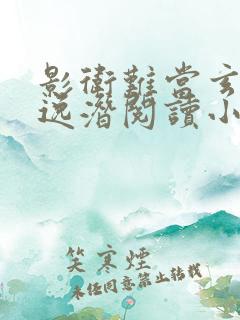 影衛難當玄
逸潛閱讀小
笑寒煙
未經同意禁止转载